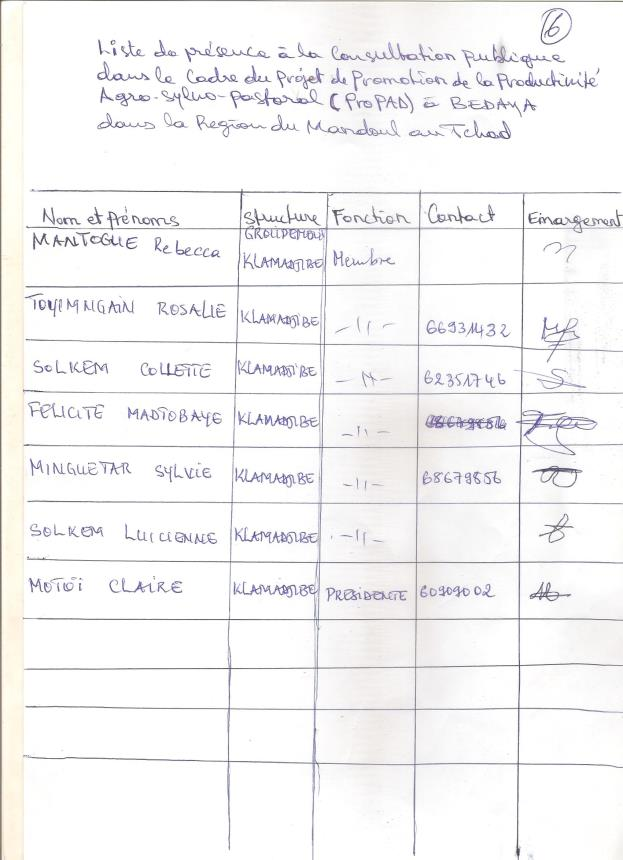 6
Liste de présence à la Consultation publique
dans le Cadre du Projet de Promotion de la Productivité
Agro-sylvo-pastoral (ProPAD) à BEDAYA
dans la Région du Mandoul au Tchad
Nom et prénoms Structure Fonction Contact Emargement
MANTOGUE Rebecca GROUPEMENT KLAMADJIBE Membre
TOYIMNGAIN ROSALIE KLAMADJIBE -11- 66931432
SOLKEM COLLETTE KLAMADJIBE -11- 62351746
FELICITE MADTOBAYE KLAMADJIBE -11-
MINGUETAR SYLVIE KLAMADJIBE -11- 68679856
SOLKEM LUCIENNE KLAMADJIBE -11-
MOTOÏ CLAIRE KLAMADJIBE PRESIDENTE 60909002